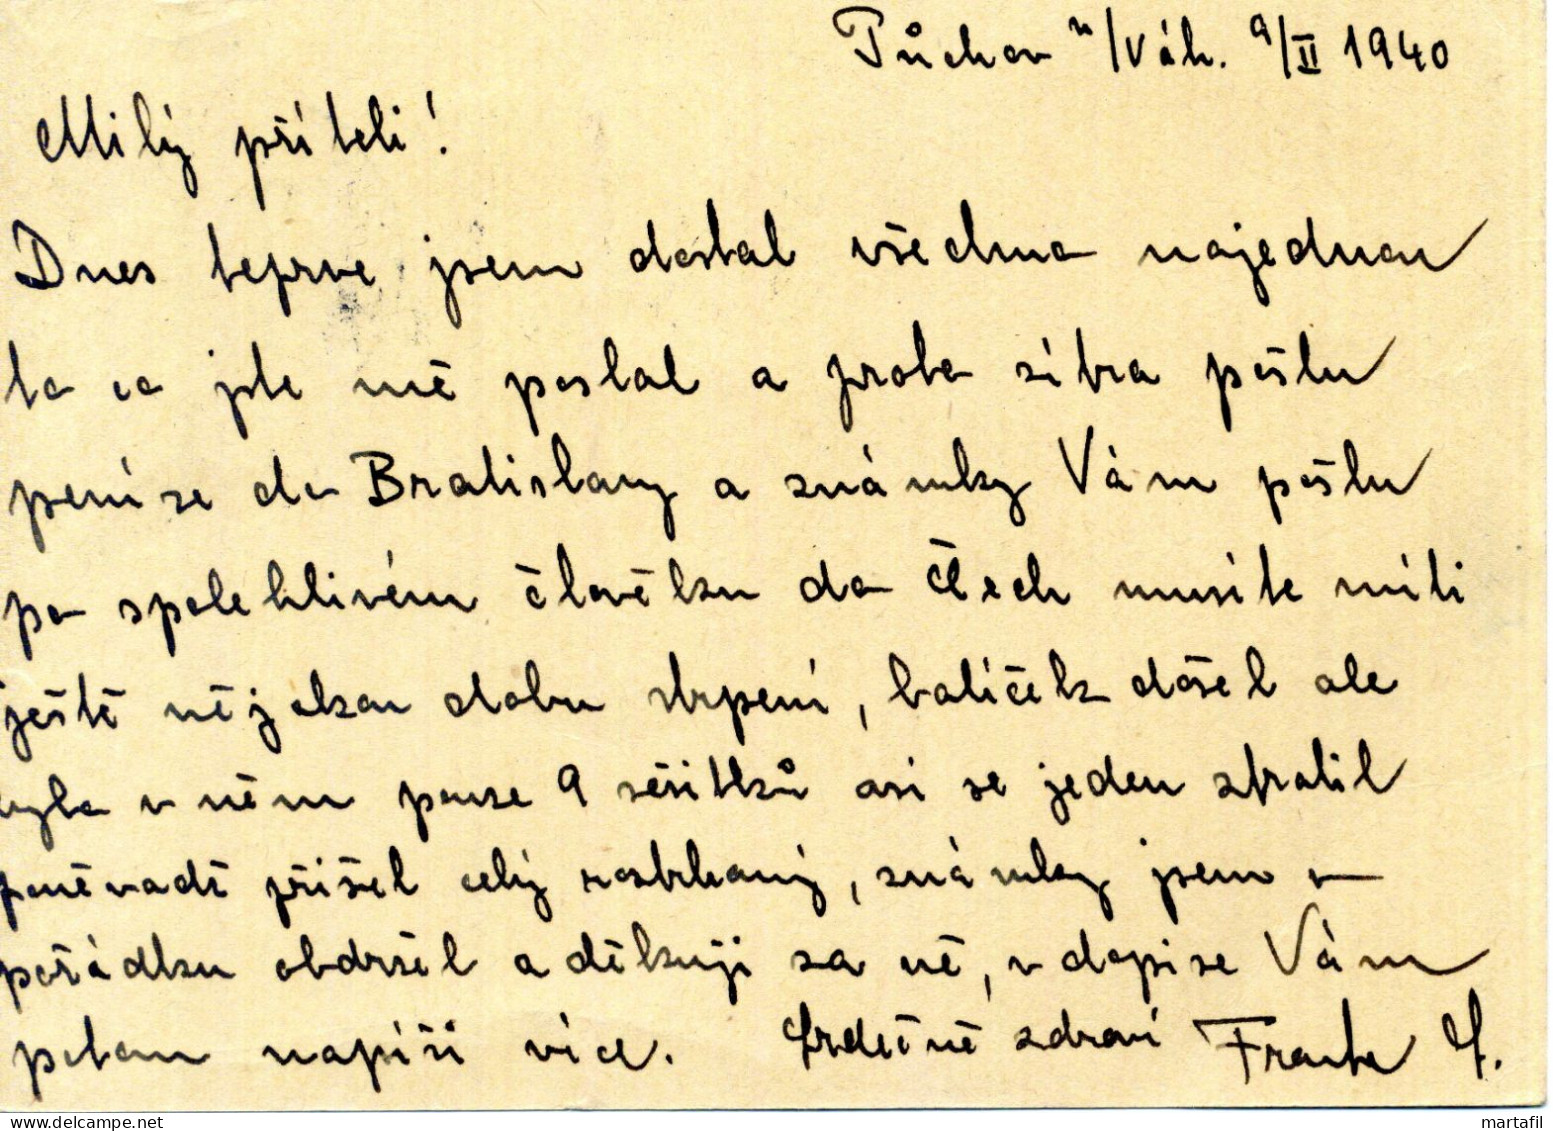 Půchov n/Váh. 9/II 1940
Milý příteli!
Dnes teprve jsem dostal všechno najednou
to co jste mě poslal a proto zítra pošlu
peníze do Bratislavy a známky Vám pošlu
po spolehlivém člověku do Čech musíte míti
ještě nějakou dobu strpení, balíček došel ale
bylo v něm pouze 9 sešitků asi se jeden ztratil
poněvadž přišel celý roztrhaný, známky jsem v
pořádku obdržel a děkuji za ně, v dopise Vám
potom napíši více. Srdečně zdraví Franta
www.delcampe.net
martafil